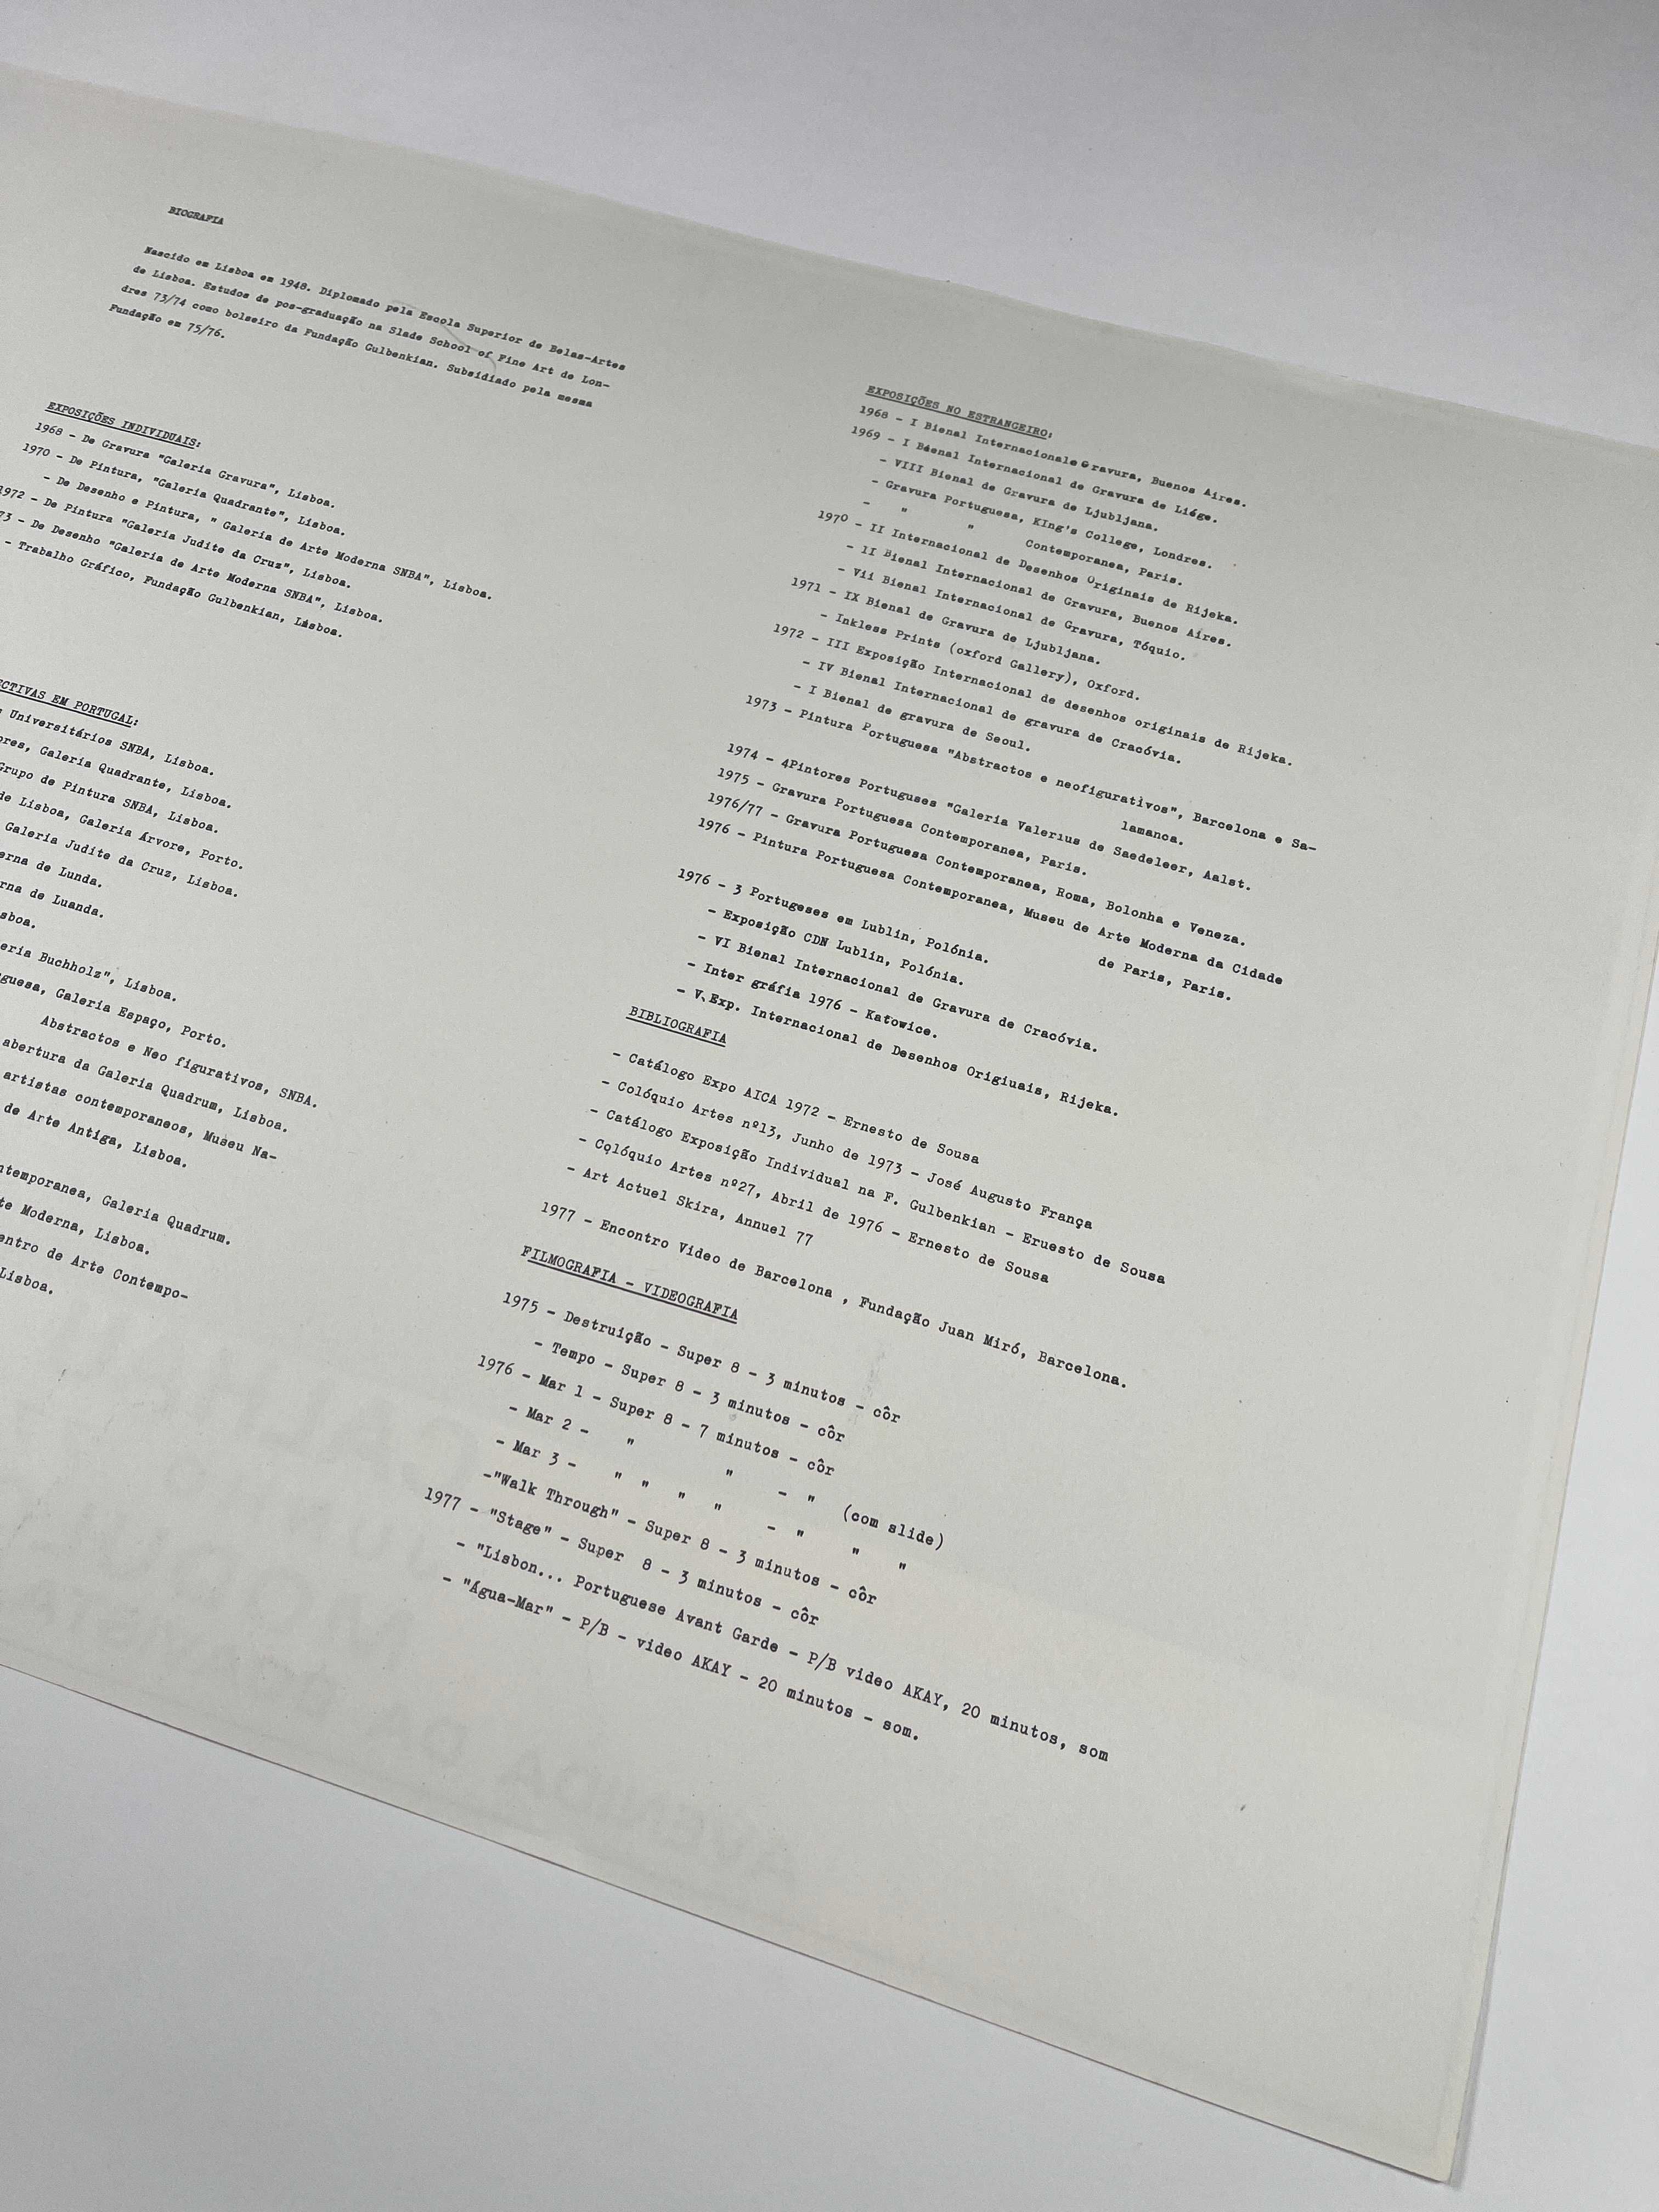 BIOGRAFIA
Nascido em Lisboa em 1948. Diplomado pela Escola Superior de Belas-Artes
de Lisboa. Estudos de pos-graduação na Slade School of Fine Art de Lon-
dres 73/74 como bolseiro da Fundação Gulbenkian. Subsidiado pela mesma
Fundação em 75/76.
EXPOSIÇÕES INDIVIDUAIS:
1968 - De Gravura "Galeria Gravura", Lisboa.
1970 - De Pintura, "Galeria Quadrante", Lisboa.
- De Desenho e Pintura, " Galeria de Arte Moderna SNBA", Lisboa.
1972 - De Pintura "Galeria Judite da Cruz", Lisboa.
73 - De Desenho "Galeria de Arte Moderna SNBA", Lisboa.
- Trabalho Gráfico, Fundação Gulbenkian, Lisboa.
ECTIVAS EM PORTUGAL:
s Universitários SNBA, Lisboa.
ores, Galeria Quadrante, Lisboa.
Grupo de Pintura SNBA, Lisboa.
de Lisboa, Galeria Árvore, Porto.
Galeria Judite da Cruz, Lisboa.
erna de Lunda.
rna de Luanda.
sboa.
eria Buchholz", Lisboa.
guesa, Galeria Espaço, Porto.
Abstractos e Neo figurativos, SNBA.
abertura da Galeria Quadrum, Lisboa.
artistas contemporaneos, Museu Na-
de Arte Antiga, Lisboa.
ntemporanea, Galeria Quadrum.
te Moderna, Lisboa.
entro de Arte Contempo-
Lisboa.
EXPOSIÇÕES NO ESTRANGEIRO:
1968 - I Bienal Internacionale Gravura, Buenos Aires.
1969 - I Bienal Internacional de Gravura de Liége.
- VIII Bienal de Gravura de Ljubljana.
- Gravura Portuguesa, KIng's College, Londres.
- " " Contemporanea, Paris.
1970 - II Internacional de Desenhos Originais de Rijeka.
- II Bienal Internacional de Gravura, Buenos Aires.
- Vii Bienal Internacional de Gravura, Tóquio.
1971 - IX Bienal de Gravura de Ljubljana.
- Inkless Prints (oxford Gallery), Oxford.
1972 - III Exposição Internacional de desenhos originais de Rijeka.
- IV Bienal Internacional de gravura de Cracóvia.
- I Bienal de gravura de Seoul.
1973 - Pintura Portuguesa "Abstractos e neofigurativos", Barcelona e Sa-
lamanca.
1974 - 4Pintores Portugueses "Galeria Valerius de Saedeleer, Aalst.
1975 - Gravura Portuguesa Contemporanea, Paris.
1976/77 - Gravura Portuguesa Contemporanea, Roma, Bolonha e Veneza.
1976 - Pintura Portuguesa Contemporanea, Museu de Arte Moderna da Cidade
de Paris, Paris.
1976 - 3 Portugeses em Lublin, Polónia.
- Exposição CDN Lublin, Polónia.
- VI Bienal Internacional de Gravura de Cracóvia.
- Inter gráfia 1976 - Katowice.
- V.Exp. Internacional de Desenhos Origiuais, Rijeka.
BIBLIOGRAFIA
- Catálogo Expo AICA 1972 - Ernesto de Sousa
- Colóquio Artes nº13, Junho de 1973 - José Augusto França
- Catálogo Exposição Individual na F. Gulbenkian - Eruesto de Sousa
- Colóquio Artes nº27, Abril de 1976 - Ernesto de Sousa
- Art Actuel Skira, Annuel 77
1977 - Encontro Video de Barcelona , Fundação Juan Miró, Barcelona.
FILMOGRAFIA - VIDEOGRAFIA
1975 - Destruição - Super 8 - 3 minutos - côr
- Tempo - Super 8 - 3 minutos - côr
1976 - Mar 1 - Super 8 - 7 minutos - côr
- Mar 2 - " " - " (com slide)
- Mar 3 - " " " " - " " "
-"Walk Through" - Super 8 - 3 minutos - côr
1977 - "Stage" - Super 8 - 3 minutos - côr
- "Lisbon... Portuguese Avant Garde - P/B video AKAY, 20 minutos, som
- "Água-Mar" - P/B - video AKAY - 20 minutos - som.